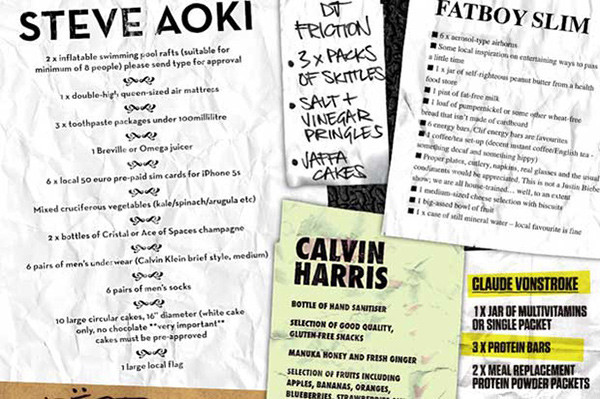 STEVE AOKI
2 x inflatable swimming pool rafts (suitable for
minimum of 8 people) please send type for approval
1 x double-high queen-sized air mattress
3 x toothpaste packages under 100millilitre
1 Breville or Omega juicer
6 x local 50 euro pre-paid sim cards for iPhone 5s
Mixed cruciferous vegetables (kale/spinach/arugula etc)
2 x bottles of Cristal or Ace of Spaces champagne
6 pairs of men's underwear (Calvin Klein brief style, medium)
6 pairs of men's socks
10 large circular cakes, 16" diameter (white cake
only, no chocolate **very important**
cakes must be pre-approved
1 large local flag
DJ
FRICTION
• 3 x PACKS
OF SKITTLES
• SALT +
VINEGAR
PRINGLES
• JAFFA
CAKES
FATBOY SLIM
■ 6 x aerosol-type airhorns
■ Some local inspiration on entertaining ways to pass
a little time
■ 1 x jar of self-righteous peanut butter from a health
food store
■ 1 pint of fat-free milk
■ 1 loaf of pumpernickel or some other wheat-free
bread that isn't made of cardboard
■ 6 energy bars/Clif energy bars are favourites
■ 4 coffee/tea set-up (decent instant coffee/English tea -
something decaf and something hippy)
■ Proper plates, cutlery, napkins, real glasses and the usual
condiments would be appreciated. This is not a Justin Bieber
show; we are all house-trained... well, to an extent
■ 1 medium-sized cheese selection with biscuits
■ 1 big-assed bowl of fruit
■ 1 x case of still mineral water – local favourite is fine
CALVIN
HARRIS
BOTTLE OF HAND SANITISER
SELECTION OF GOOD QUALITY,
GLUTEN-FREE SNACKS
MANUKA HONEY AND FRESH GINGER
SELECTION OF FRUITS INCLUDING
APPLES, BANANAS, ORANGES,
BLUEBERRIES, STRAWBERRIES
CLAUDE VONSTROKE
1 X JAR OF MULTIVITAMINS
OR SINGLE PACKET
3 X PROTEIN BARS
2 X MEAL REPLACEMENT
PROTEIN POWDER PACKETS